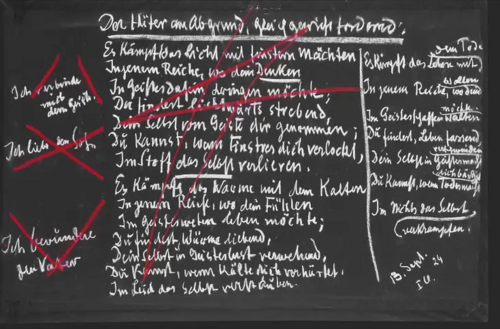 Der Hüter am Abgrund,
Es kämpft das Licht mit finstren Mächten
In jenem Reiche, wo dein Denken
In Geistesdasein dringen möchte;
Du findest, lichtwärts strebend,
Dein Selbst vom Geiste dir genommen;
Du kannst, wenn Finstres dich verlockt,
Im Stoff das Selbst verlieren.
Es kämpft das Warme mit dem Kalten
In jenem Reiche, wo dein Fühlen
Im Geistesweben leben möchte;
Du findest, Wärme liebend,
Dein Selbst in Geisteslust verwehend,
Du kannst, wenn Kälte dich verhärtet,
Im Leid das Selbst verstäuben.
Ich
mit
dem Geist.
Ich liebe den
Ich bewundre
dem Tode
Es kämpft das Leben mit
In jenem Reiche, wo dein
möchte
Im Geistesschaffen walten
Du findest, Leben fassend,
Dein Selbst in Geistesmacht
Du kannst, wenn Todesmacht
Im Nichts das Selbst
verkrampfen.
13. Sept. 24